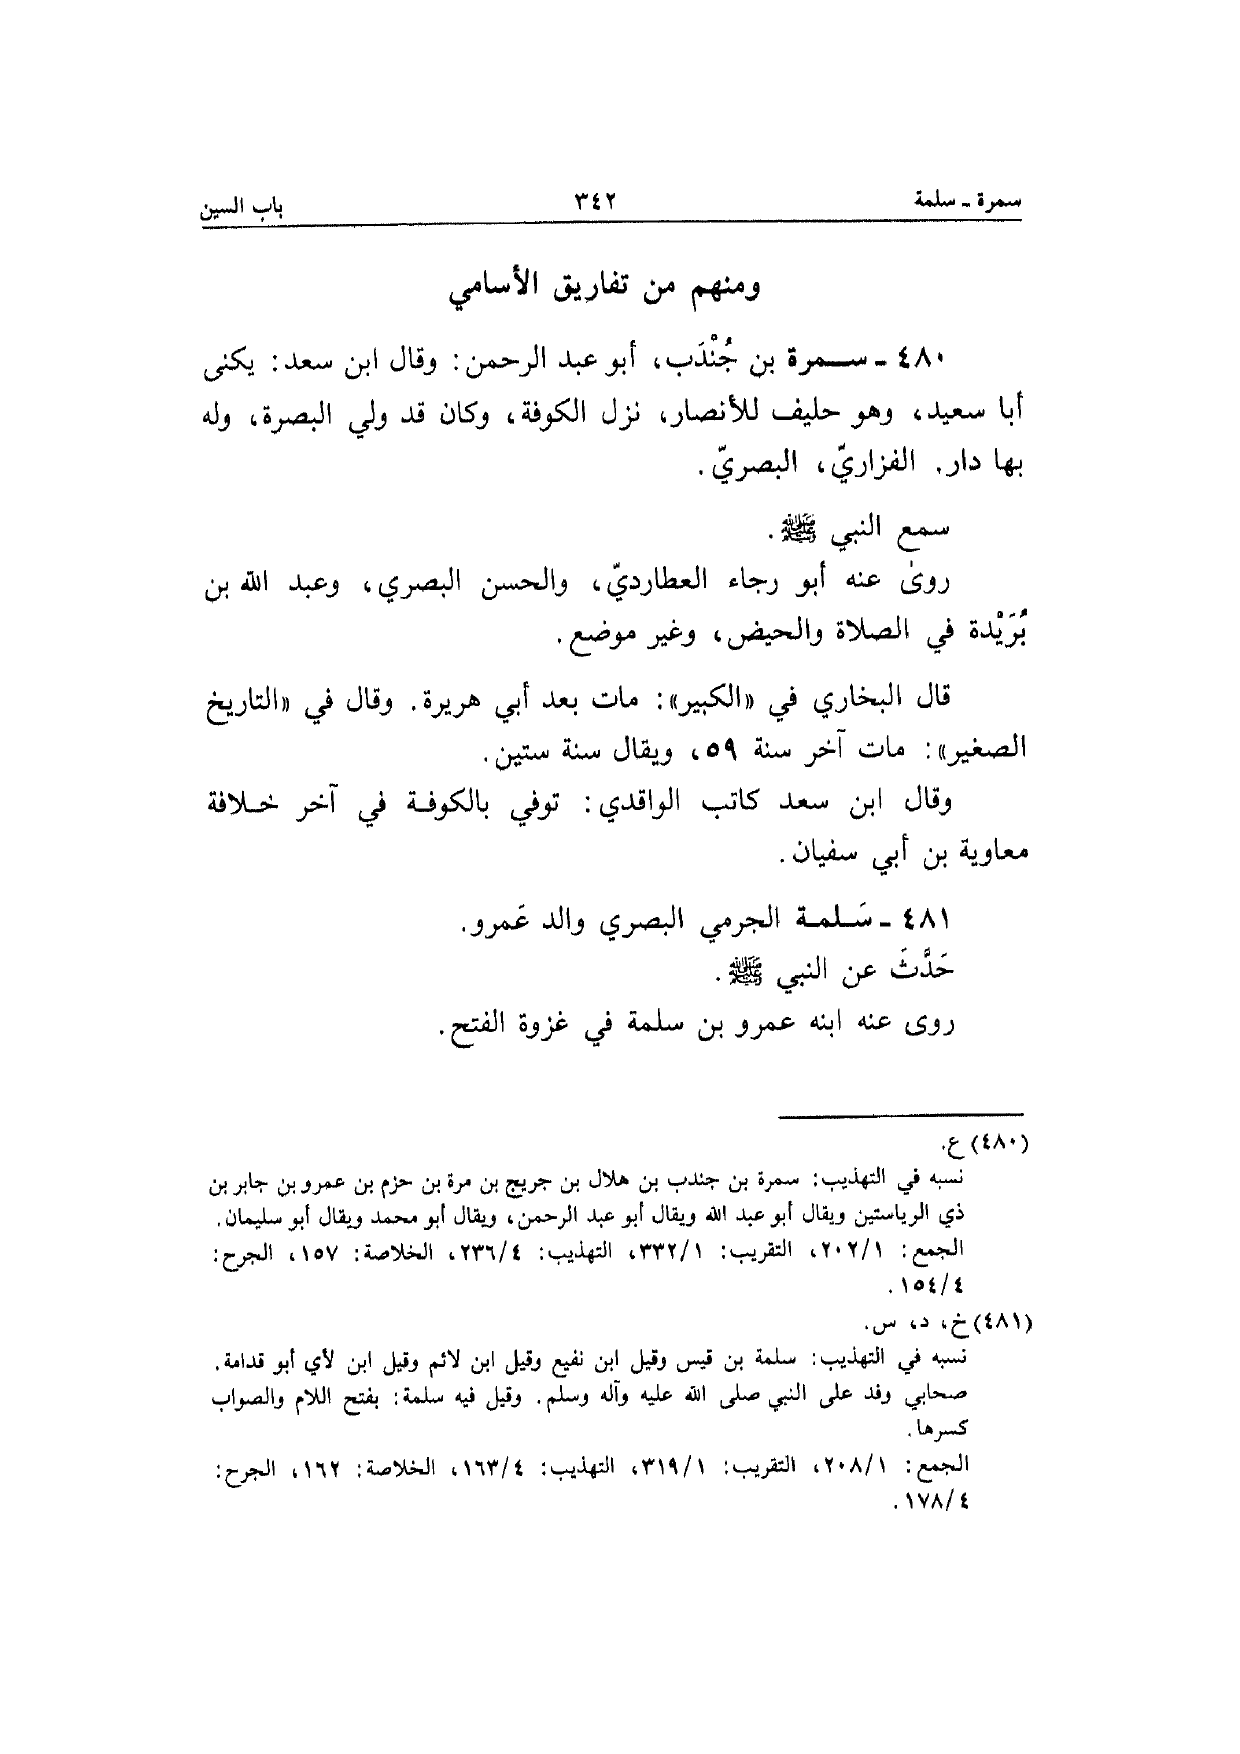 سمرة ـ سلمة ٣٤٢ باب السين
ومنهم من تفاريق الأسامي
٤٨٠ ـ سمرة بن جُنْدَب، أبو عبد الرحمن: وقال ابن سعد: يكنى
أبا سعيد، وهو حليف للأنصار، نزل الكوفة، وكان قد ولي البصرة، وله
بها دار. الفزاريّ، البصريّ.
سمع النبي ﷺ.
روىٰ عنه أبو رجاء العطارديّ، والحسن البصري، وعبد الله بن
بُرَيْدة في الصلاة والحيض، وغير موضع.
قال البخاري في «الكبير»: مات بعد أبي هريرة. وقال في «التاريخ
الصغير»: مات آخر سنة ٥٩، ويقال سنة ستين.
وقال ابن سعد كاتب الواقدي: توفي بالكوفة في آخر خلافة
معاوية بن أبي سفيان.
٤٨١ ـ سَلمة الجرمي البصري والد عَمرو.
حَدَّثَ عن النبي ﷺ.
روى عنه ابنه عمرو بن سلمة في غزوة الفتح.
(٤٨٠) ع.
نسبه في التهذيب: سمرة بن جندب بن هلال بن جريج بن مرة بن حزم بن عمرو بن جابر بن
ذي الرياستين ويقال أبو عبد الله ويقال أبو عبد الرحمن، ويقال أبو محمد ويقال أبو سليمان.
الجمع: ٢٠٢/١، التقريب: ٣٣٢/١، التهذيب: ٢٣٦/٤، الخلاصة: ١٥٧، الجرح:
١٥٤/٤.
(٤٨١) خ، د، س.
نسبه في التهذيب: سلمة بن قيس وقيل ابن نفيع وقيل ابن لائم وقيل ابن لأي أبو قدامة.
صحابي وفد على النبي صلى الله عليه وآله وسلم. وقيل فيه سلمة: بفتح اللام والصواب
كسرها.
الجمع: ٢٠٨/١، التقريب: ٣١٩/١، التهذيب: ١٦٣/٤، الخلاصة: ١٦٢، الجرح:
١٧٨/٤.